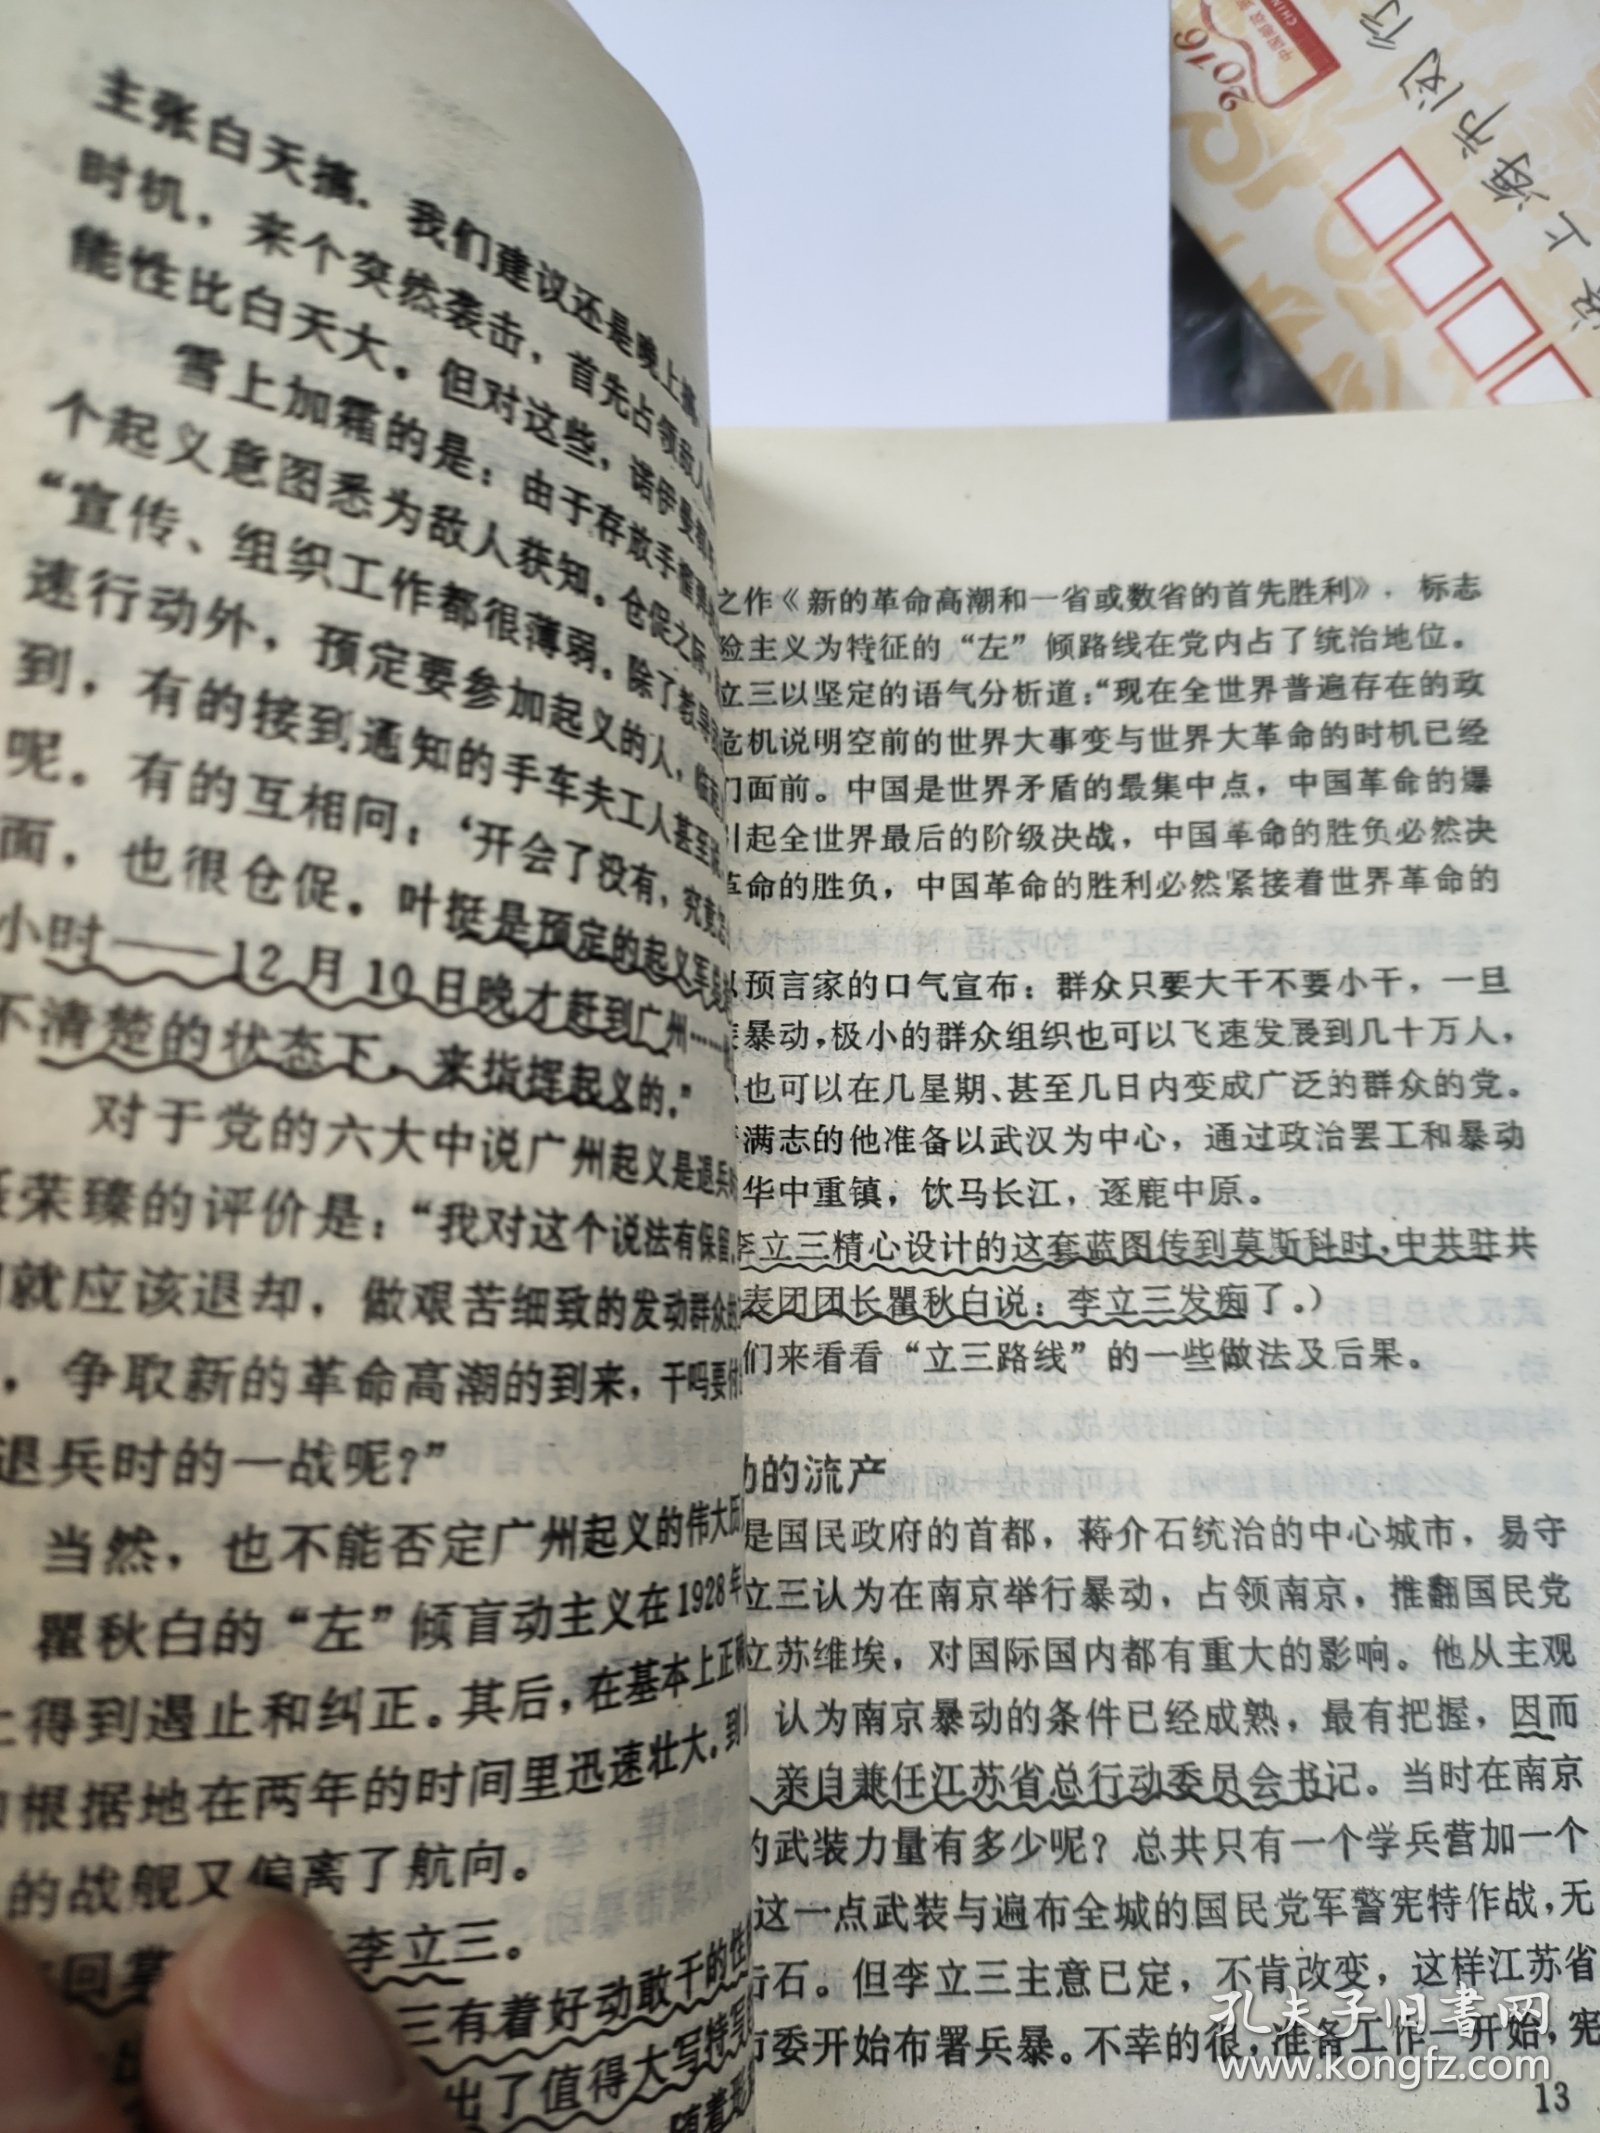 主张白天搞. 我们建议还是晚上搞
时机，来个突然袭击，首先占领敌人
能性比白天大。但对这些，诺伊曼都
雪上加霜的是：由于存敢手榴弹
个起义意图悉为敌人获知。仓促之际，
“宣传、组织工作都很薄弱。除了教导
速行动外，预定要参加起义的人，临
到，有的接到通知的手车夫工人甚至
呢。有的互相问：‘开会了没有，究竟
面，也很仓促。叶挺是预定的起义军
小时——12月10日晚才赶到广州……
不清楚的状态下，来指挥起义的.”
对于党的六大中说广州起义是退兵
荣臻的评价是：“我对这个说法有保留
就应该退却，做艰苦细致的发动群众
，争取新的革命高潮的到来，干吗要
退兵时的一战呢？”
当然，也不能否定广州起义的伟大
瞿秋白的“左”倾盲动主义在1928年
得到遏止和纠正。其后，在基本上正
根据地在两年的时间里迅速壮大。到
的战舰又偏离了航向。
回 李立三。
三有着好动敢干的性
出了值得大写特写
随着
之作《新的革命高潮和一省或数省的首先胜利》，标志
险主义为特征的“左”倾路线在党内占了统治地位。
立三以坚定的语气分析道：“现在全世界普遍存在的政
危机说明空前的世界大事变与世界大革命的时机已经
们面前。中国是世界矛盾的最集中点，中国革命的爆
引起全世界最后的阶级决战，中国革命的胜负必然决
革命的胜负，中国革命的胜利必然紧接着世界革命的
以预言家的口气宣布：群众只要大干不要小干，一旦
暴动，极小的群众组织也可以飞速发展到几十万人，
也可以在几星期、甚至几日内变成广泛的群众的党。
满志的他准备以武汉为中心，通过政治罢工和暴动
华中重镇，饮马长江，逐鹿中原。
李立三精心设计的这套蓝图传到莫斯科时，中共驻共
表团团长瞿秋白说：李立三发痴了。）
们来看看“立三路线”的一些做法及后果。
动的流产
是国民政府的首都，蒋介石统治的中心城市，易守
立三认为在南京举行暴动，占领南京，推翻国民党
立苏维埃，对国际国内都有重大的影响。他从主观
认为南京暴动的条件已经成熟，最有把握，因而
亲自兼任江苏省总行动委员会书记。当时在南京
的武装力量有多少呢？总共只有一个学兵营加一个
这一点武装与遍布全城的国民党军警宪特作战，无
击石。但李立三主意已定，不肯改变，这样江苏省
市委开始布署兵暴。不幸的很，准备工作一开始，宪
13
2016
上海市闵行
孔夫子旧书网
www.kongfz.com